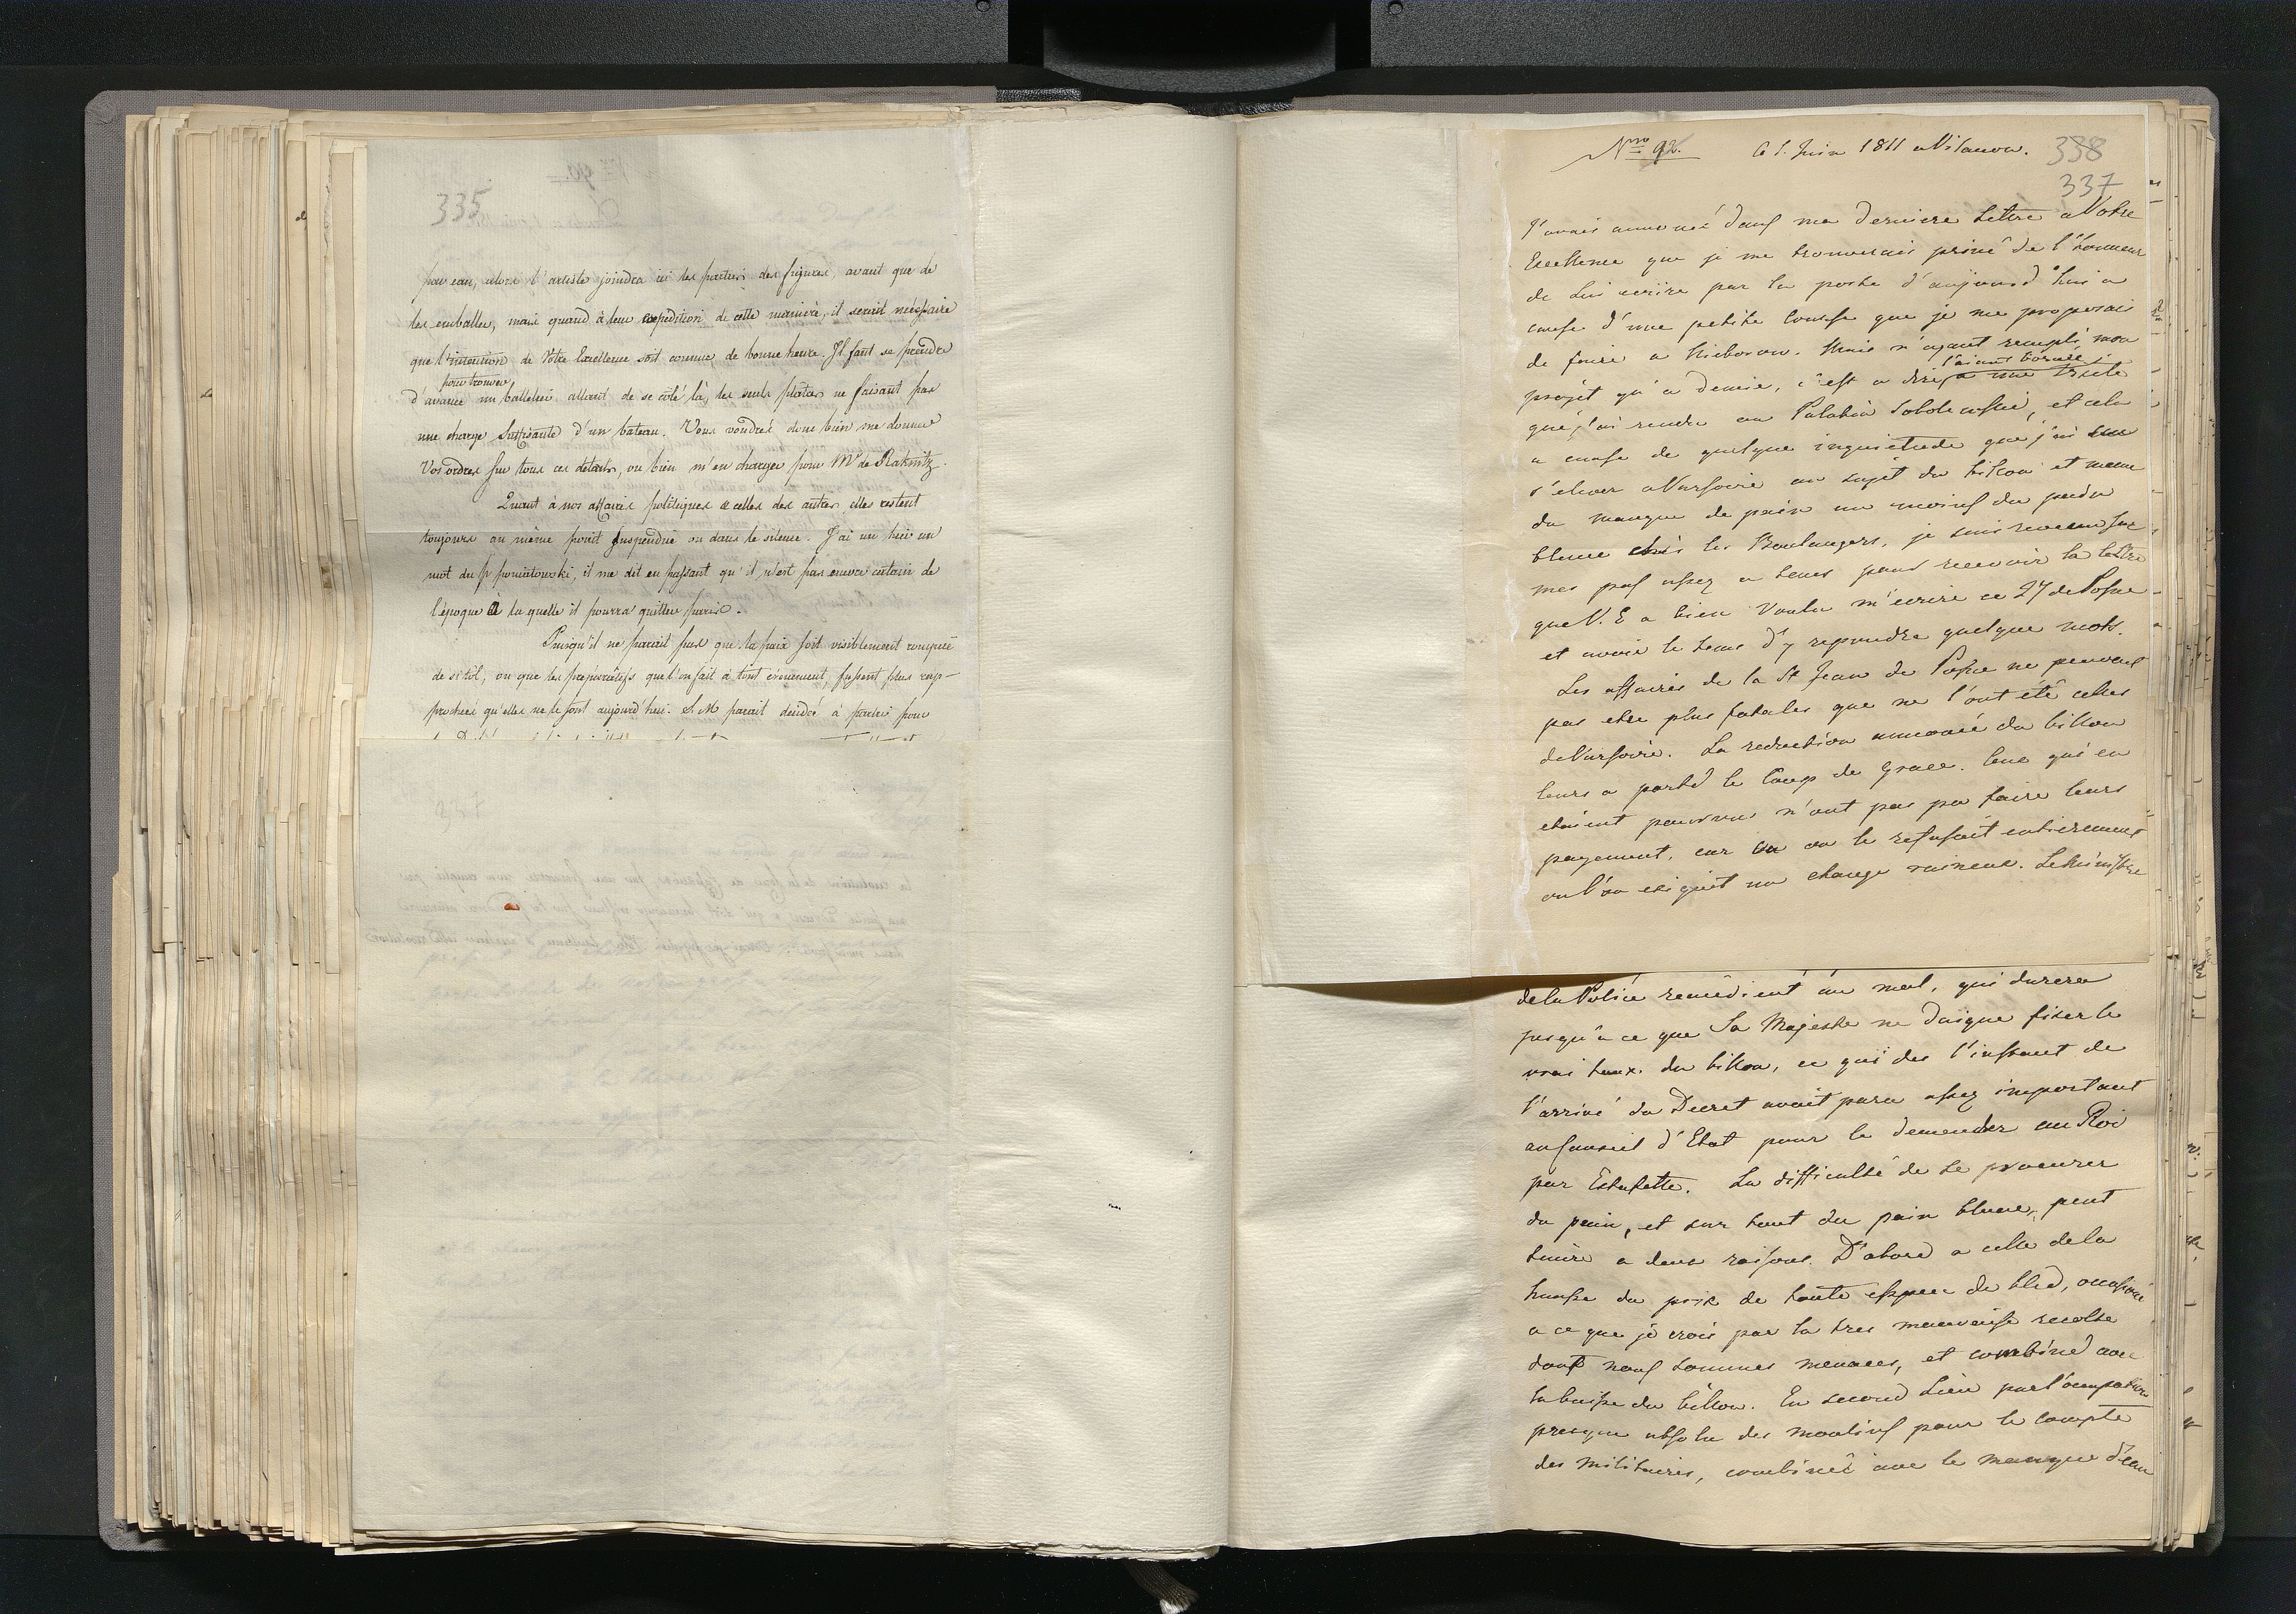 335
pas eau, alors l'artiste joindra ici les parties des figures, avant que de
les emballer, mais quand à leur expedition de cette manière, il serait nécessaire
que l'intention de Votre Excellence soit connue de bonne heure. Il faut se prendre
pour trouver
d'avance un batelier allant de se côté là, les seuls plâtres ne faisant pas
une charge suffisante d'un bateau. Vous voudrés donc bien me donner
Vos ordres sur tous ces détails, ou bien m'en charger pour Mr de Raknitz.
Quant à nos affaires politiques & celles des autres, elles restent
toujours au même point suspendue ou dans le silence. J'ai eu hier un
mot du P. poniatowski, il me dit en passant qu'il n'est pas encore certain de
l'époque à la quelle il pourra quitter paris.
Puisqu'il ne parait pas que la paix soit visiblement rompue
de sitôt, ou que les préparatifs que l'on fait à tout évènement, fussent plus rap-
prochés qu'elles ne le sont aujourd'hui. S. M parait décidé à partir pour
Nro 92. le 1. Juin 1811 a Vilanow. 338
337
J'avais annoncé dans ma derniere lettre a Votre
Excellence que je me trouverais privé de l'honneur
de lui ecrire par la poste d'aujourd'hui a
cause d'une petite course que je me proposais
de faire a Nieborow. Mais n'ayant rempli mon
l'aiant bornée
projet qu'a demie, c'est a dire a une visite
que j'ai rendu au Palatin Sobolewski, et cela
a cause de quelque inquietude que j'ai su
s'elever a Varsovie au sujet du billon et meme
du manque de pain au moins du pain
blanc chés les Boulangers, je suis revenu sur
mes pas assez a tems pour recevoir la lettre
que V. E a bien voulu m'ecrire ce 27 de Posna
et avoir le tems d'y reprondre quelque mots.
Les affaires de la St Jean de Posna ne peuvent
pas etre plus fatales que ne l'ont été celles
de Varsovie. La reduction annoncée du billon
leurs a porté le Coup de Grace. Ceux qui en
etaient pourvus n'ont pas pu faire leurs
payement, car on le refusait entierement
ou l'on exigait un change ruineux. Le Ministre
de la Police remedient au mal, qui durera
jusqu'a ce que Sa Majeste ne daigne fixer le
vrai taux du billon, ce qui des l'instant de
l'arrivé du Decret avait paru assez important
au Conseil d'Etat pour le demender au Roi
par Estafette. La difficulté de se procurer
du pain, et sur tout du pain blanc, peut
tenire a deux raisons. D'abord a celle de la
hausse du prix de toute espece de bled, occasioné
a ce que je crois par la tres mauvaise recolte
dont nous sommes menacés, et combiné avec
la baisse du billon. En second Lieu par l'occupation
presque absolue des moulins pour le Compte
des Militaires, combineé avec le manque d'eau